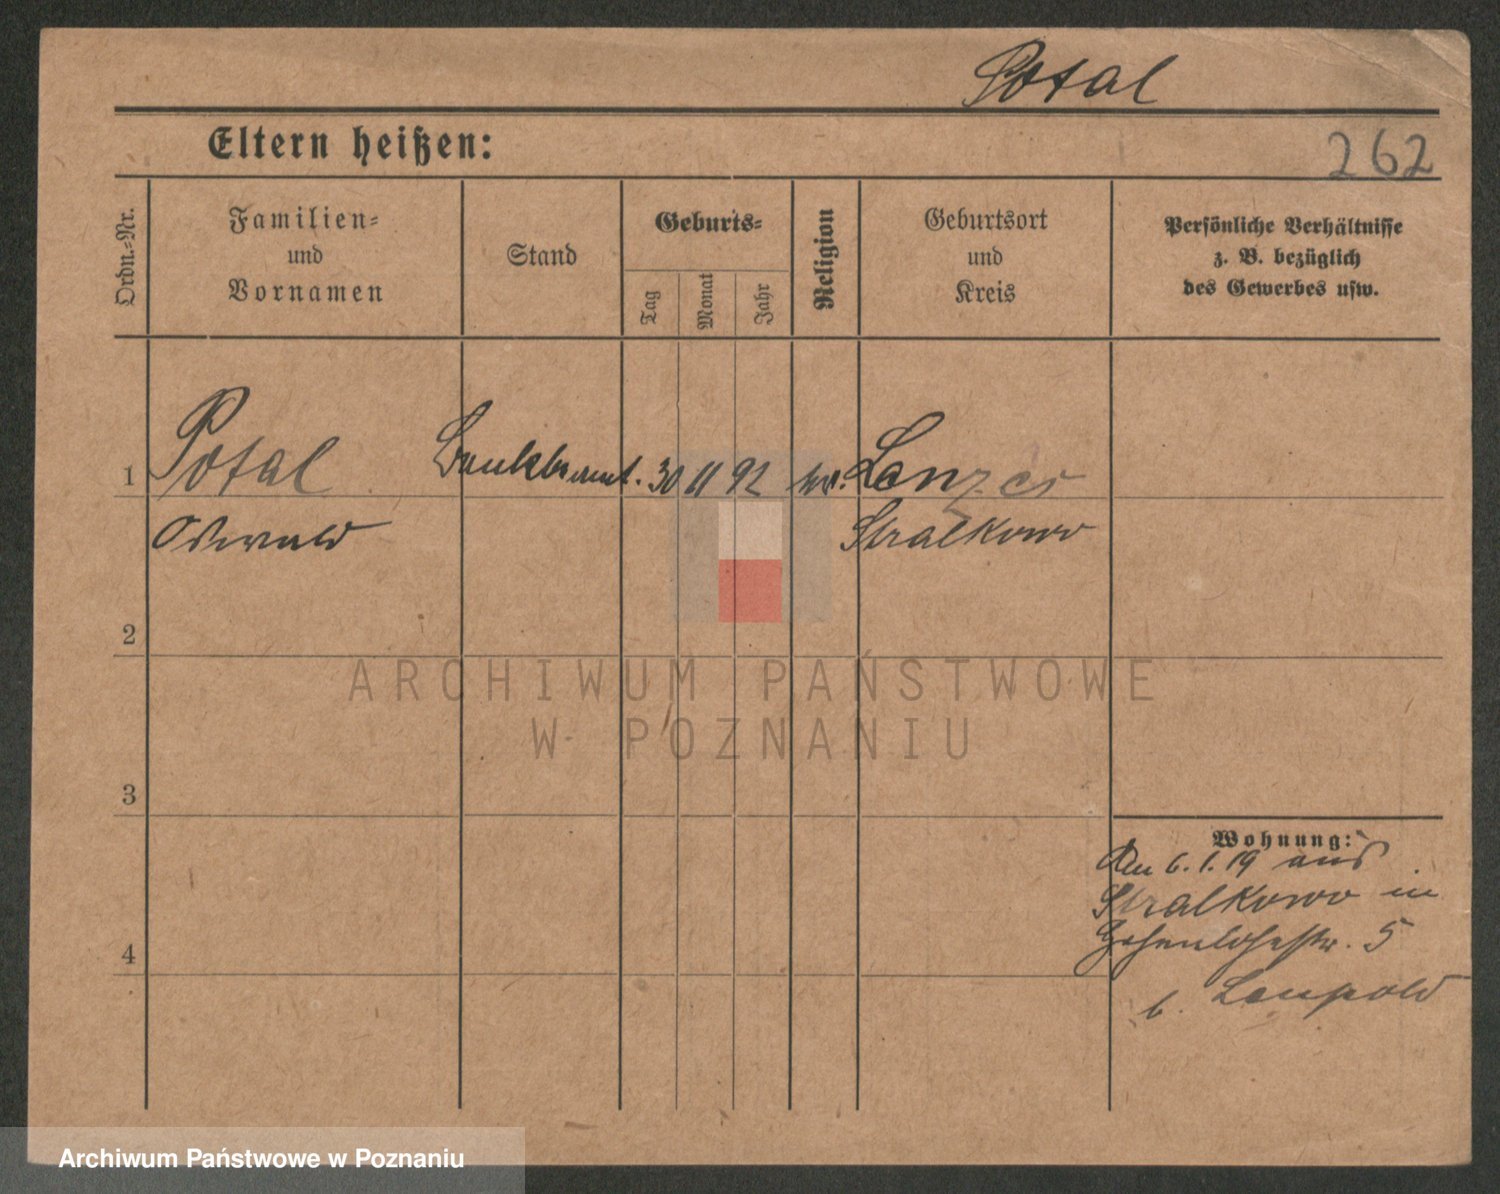 Potal
Eltern heißen:
262
Ordn.-Nr.
Familien-
und
Vornamen
Stand
Geburts-
Tag
Monat
Jahr
Religion
Geburtsort
und
Kreis
Persönliche Verhältnisse
z. B. bezüglich
des Gewerbes usw.
1 Potal Bankbeamt. 30 11 92
Oswald Stralkowo
2
3
4
Wohnung:
Den 6.1.19 aus
Stralkowo in
Hohenlohestr. 5
b. Leupold
ARCHIWUM PAŃSTWOWE
W POZNANIU
Archiwum Państwowe w Poznaniu